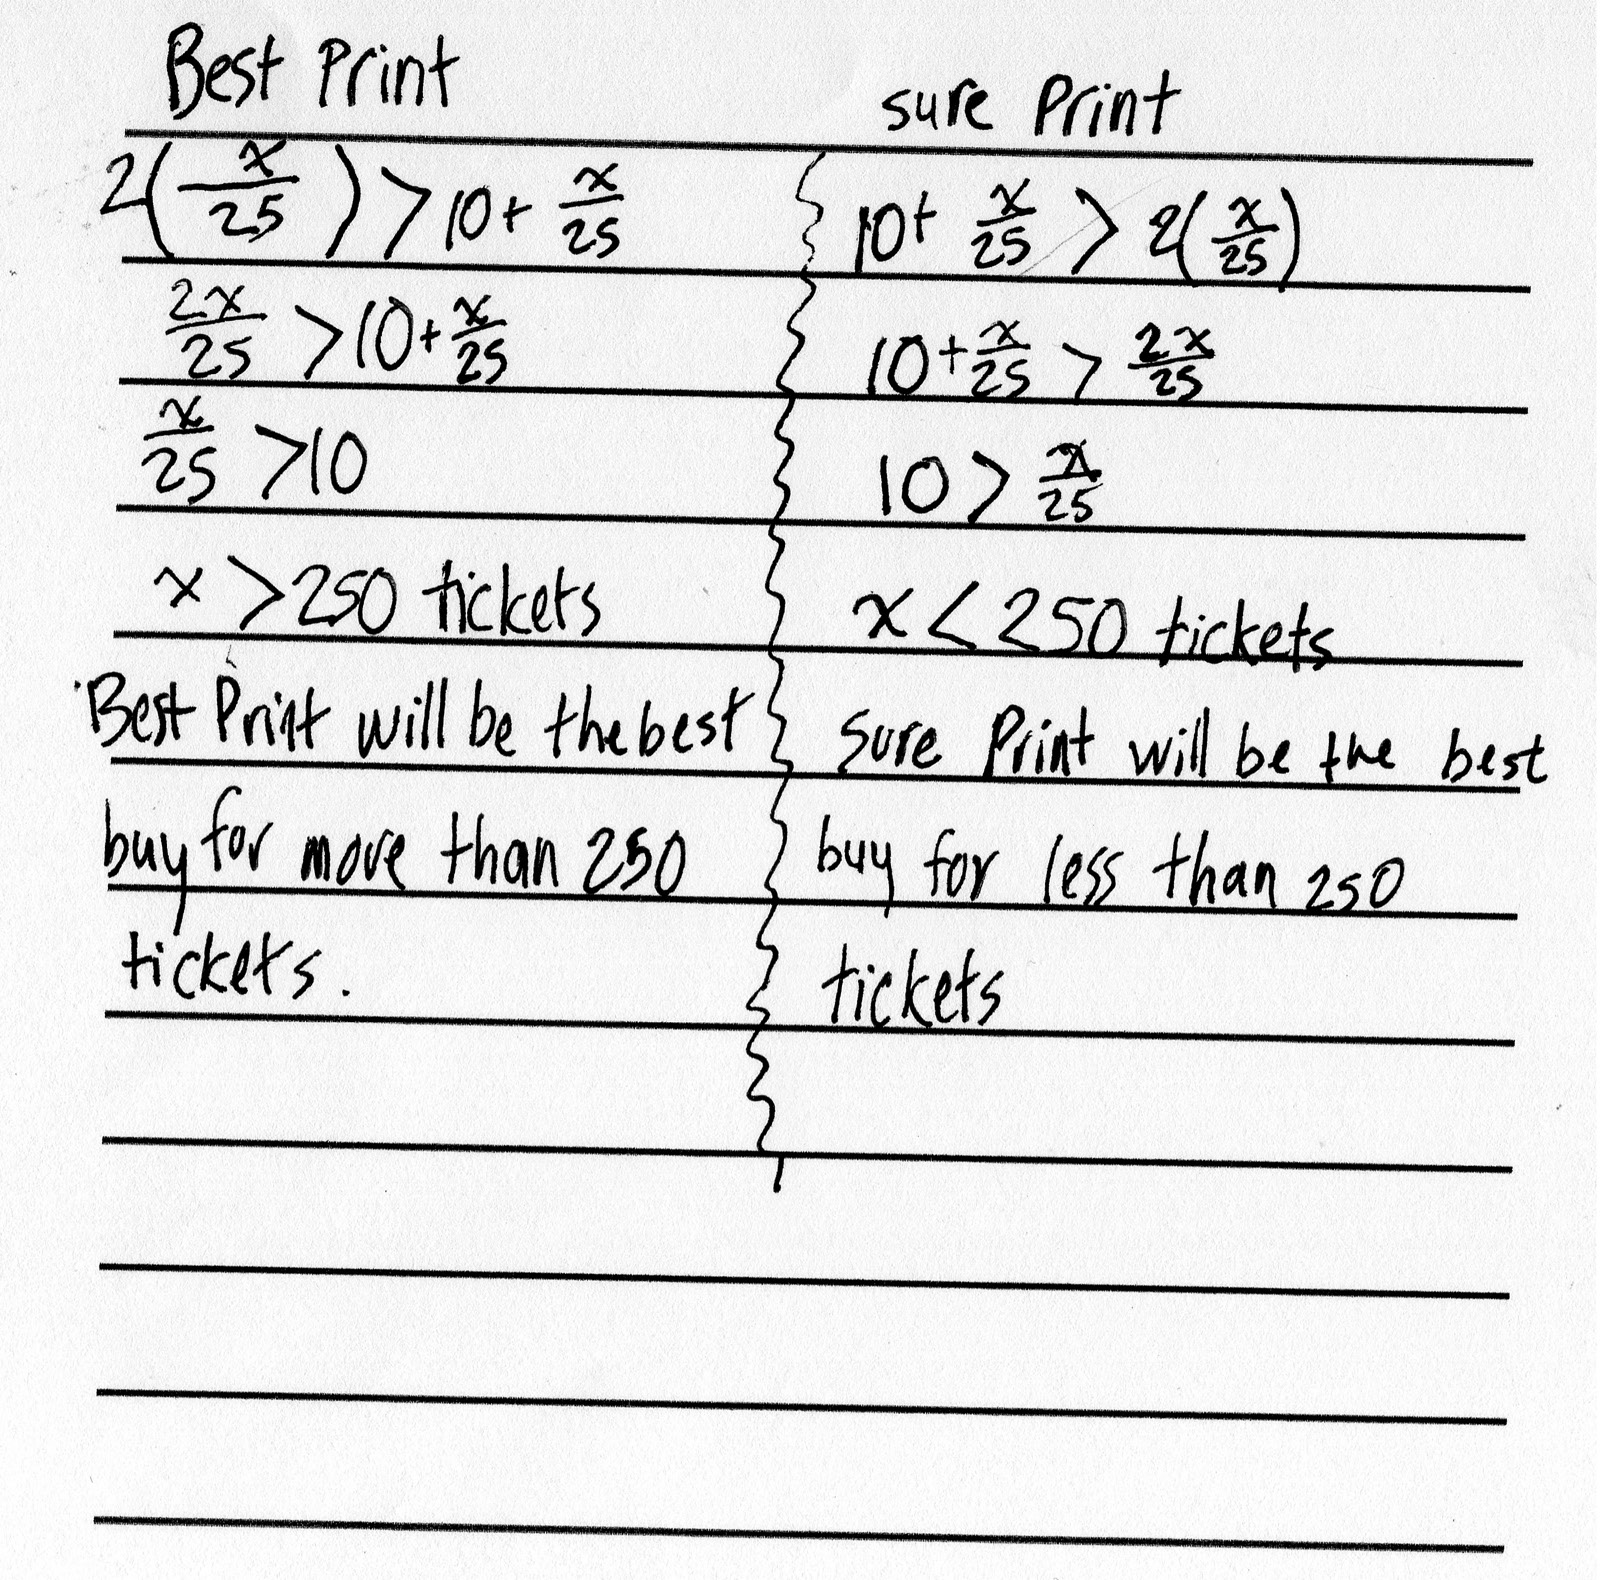 Best Print
2(x/25) > 10 + x/25
2x/25 > 10 + x/25
x/25 > 10
x > 250 tickets
Best Print will be the best
buy for more than 250
tickets.
sure Print
10 + x/25 > 2(x/25)
10 + x/25 > 2x/25
10 > x/25
x < 250 tickets
Sure Print will be the best
buy for less than 250
tickets